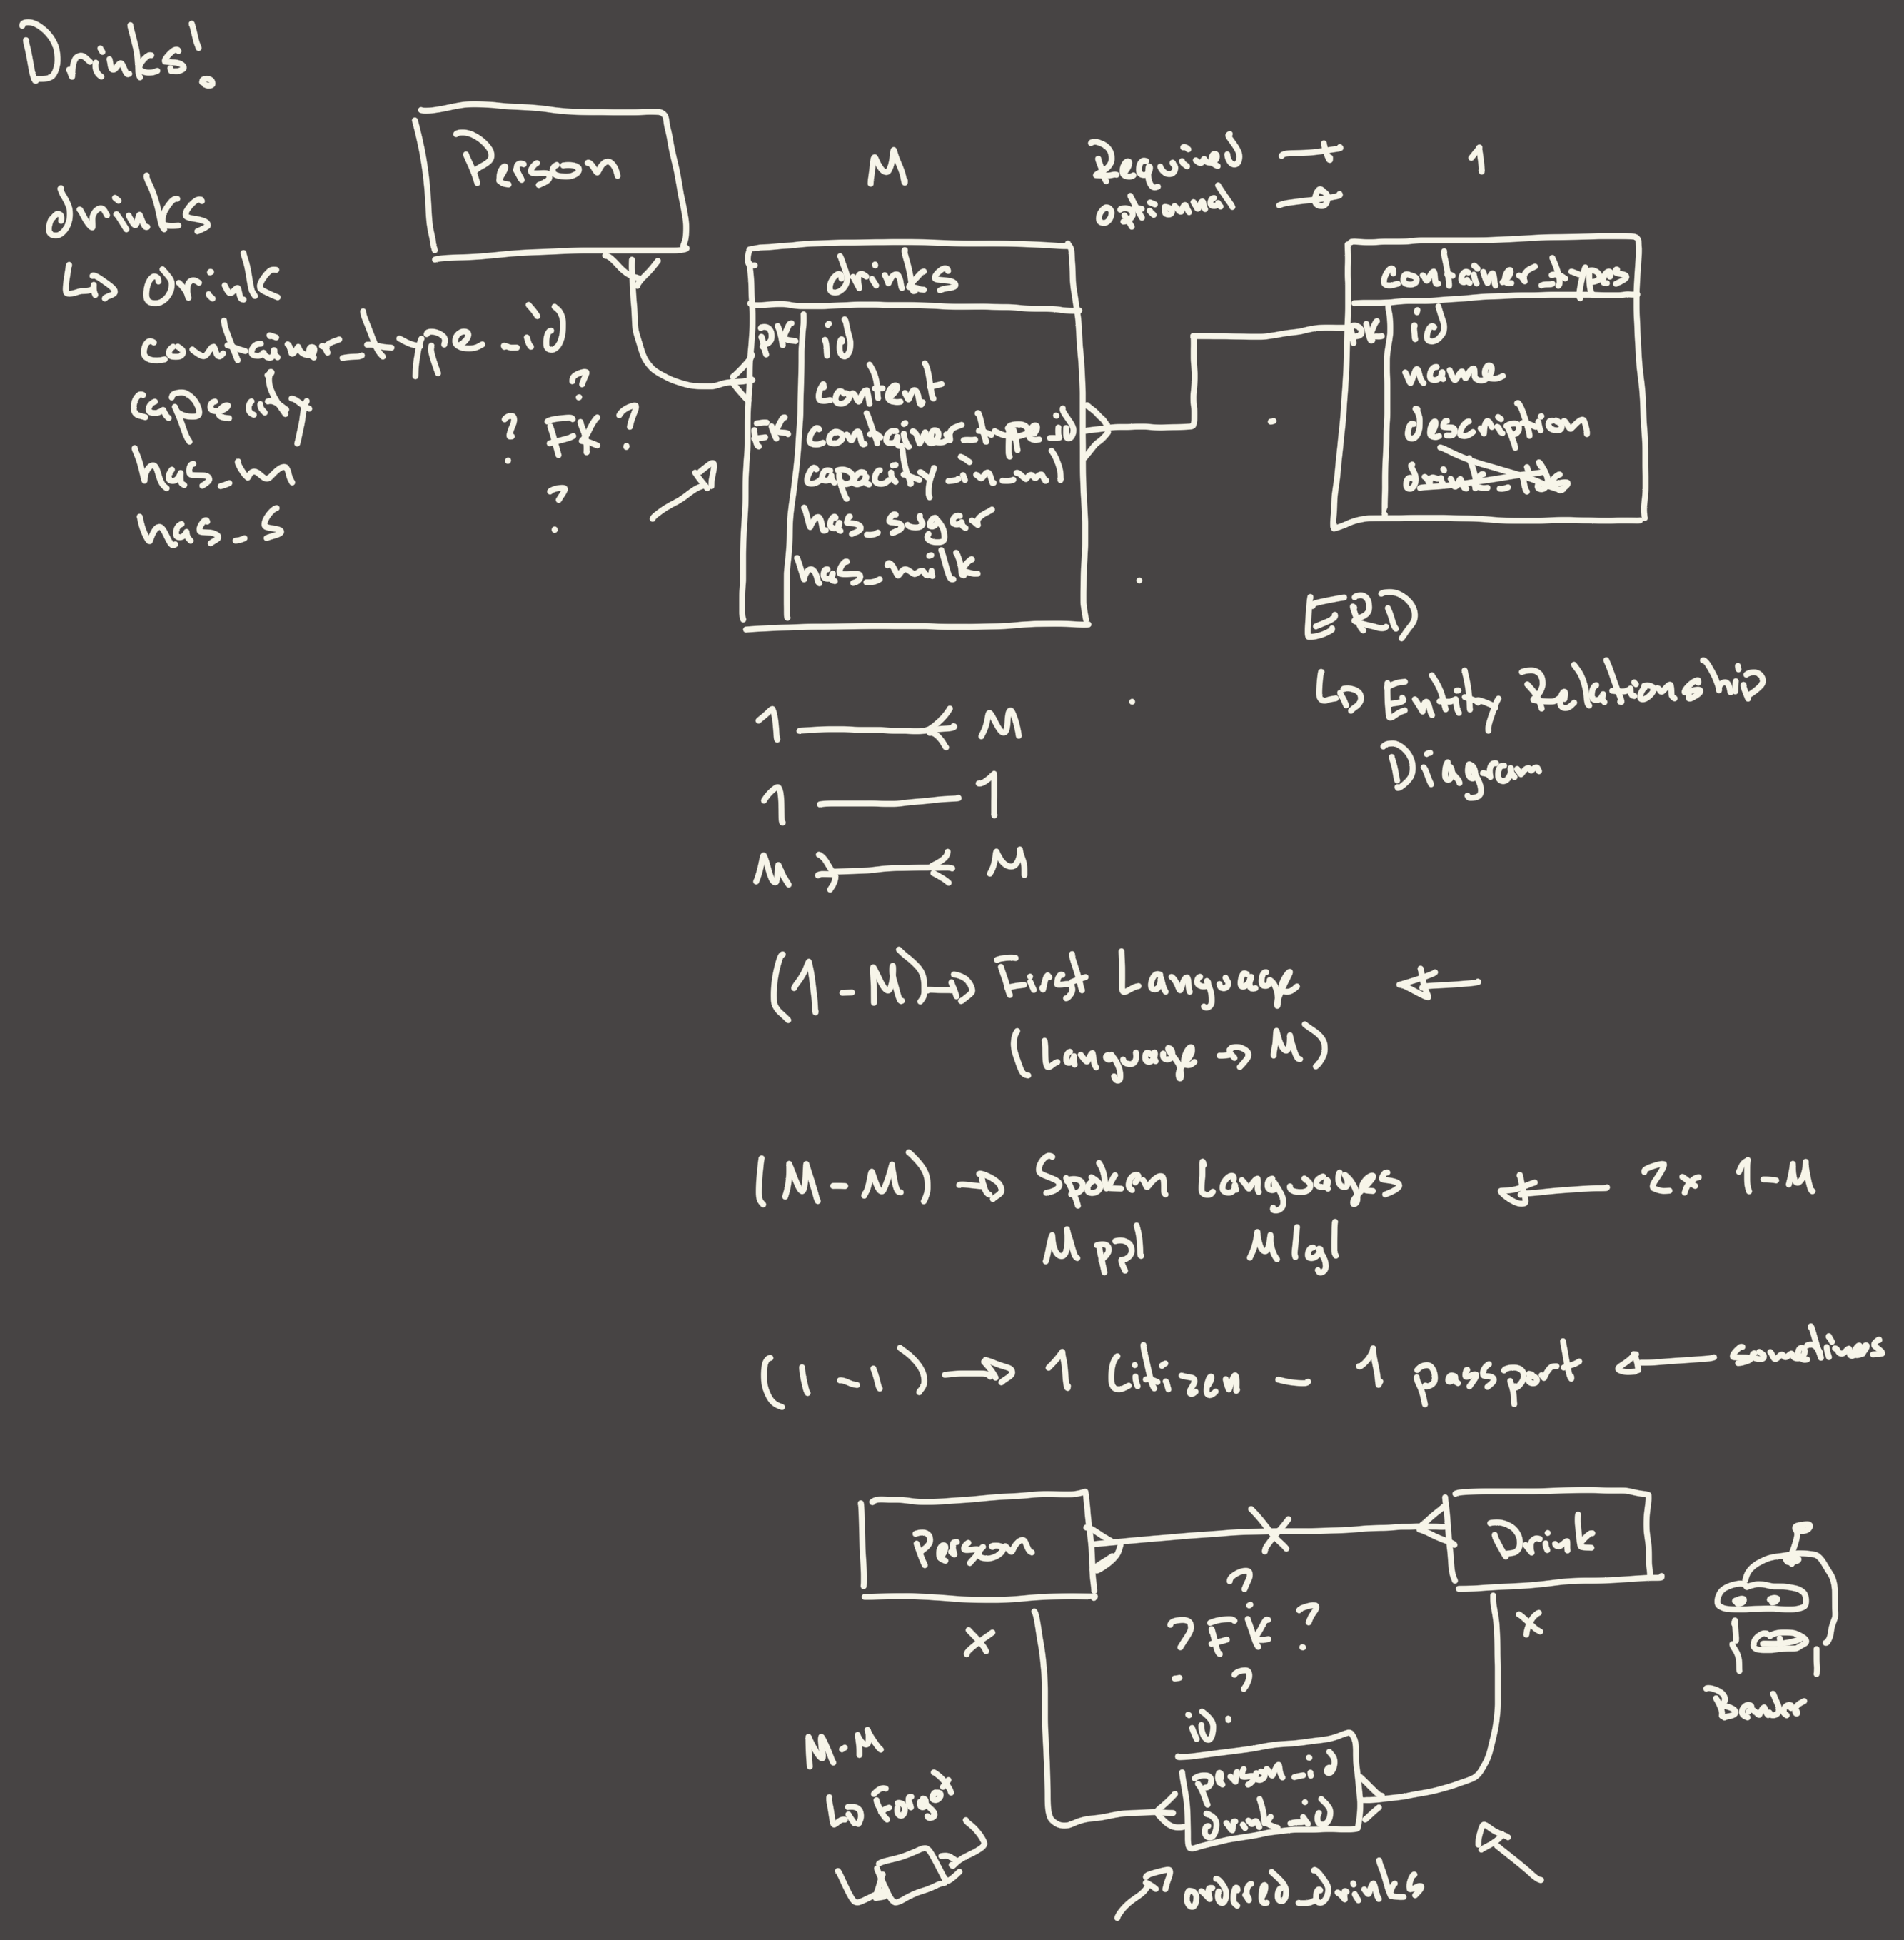 Drinks!
drinks
Drink
container_type_id
capacity
has_m
has_s
Person
? FK ?
?
?
M
Required
optional
1
drinks
PK id
content
FK container_type_id
capacity_in_ml
has_sugar
has_milk
container_types
PK id
name
description
ERD
Entity Relationship
Diagram
1 M
1 1
M M
(1-M) First Language
(Language → M)
(M-M) → Spoken Languages 2x 1-M
M ppl M lgl
(1-1) → 1 Citizen - 1 passport ← sometimes
Person
Drink
x
x
?
? FK ?
?
id
person_id
drink_id
ordered_drinks
M-M